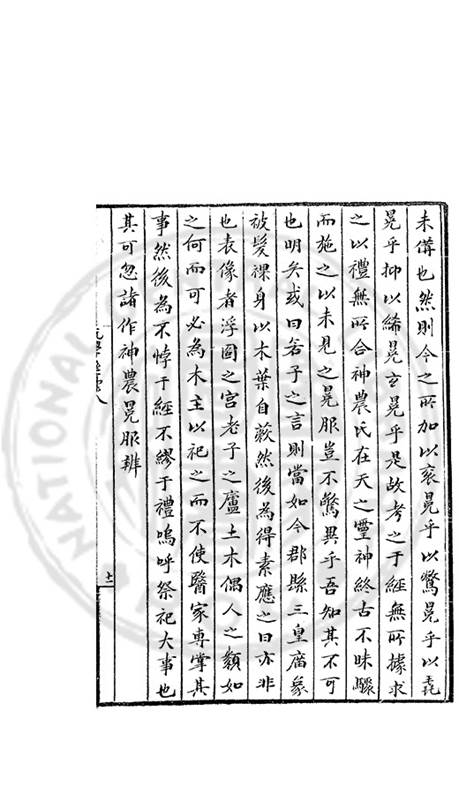 未備也然則今之所加以袞冕乎以鷩冕乎以毳
冕乎抑以絺冕玄冕乎是故考之于經無所據求
之以禮無所合神農氏在天之靈神終古不昧驟
而施之以未見之冕服豈不驚異乎吾知其不可
也明矣或曰若子之言則當如今郡縣三皇廟象
被髮祼身以木葉自蔽然後為得素應之曰亦非
也表像者浮圖之宮老子之廬土木偶人之類如
之何而可必為木主以祀之而不使醫家專掌其
事然後為不悖于經不繆于禮嗚呼祭祀大事也
其可忽諸作神農冕服辨
十一
NATIONAL